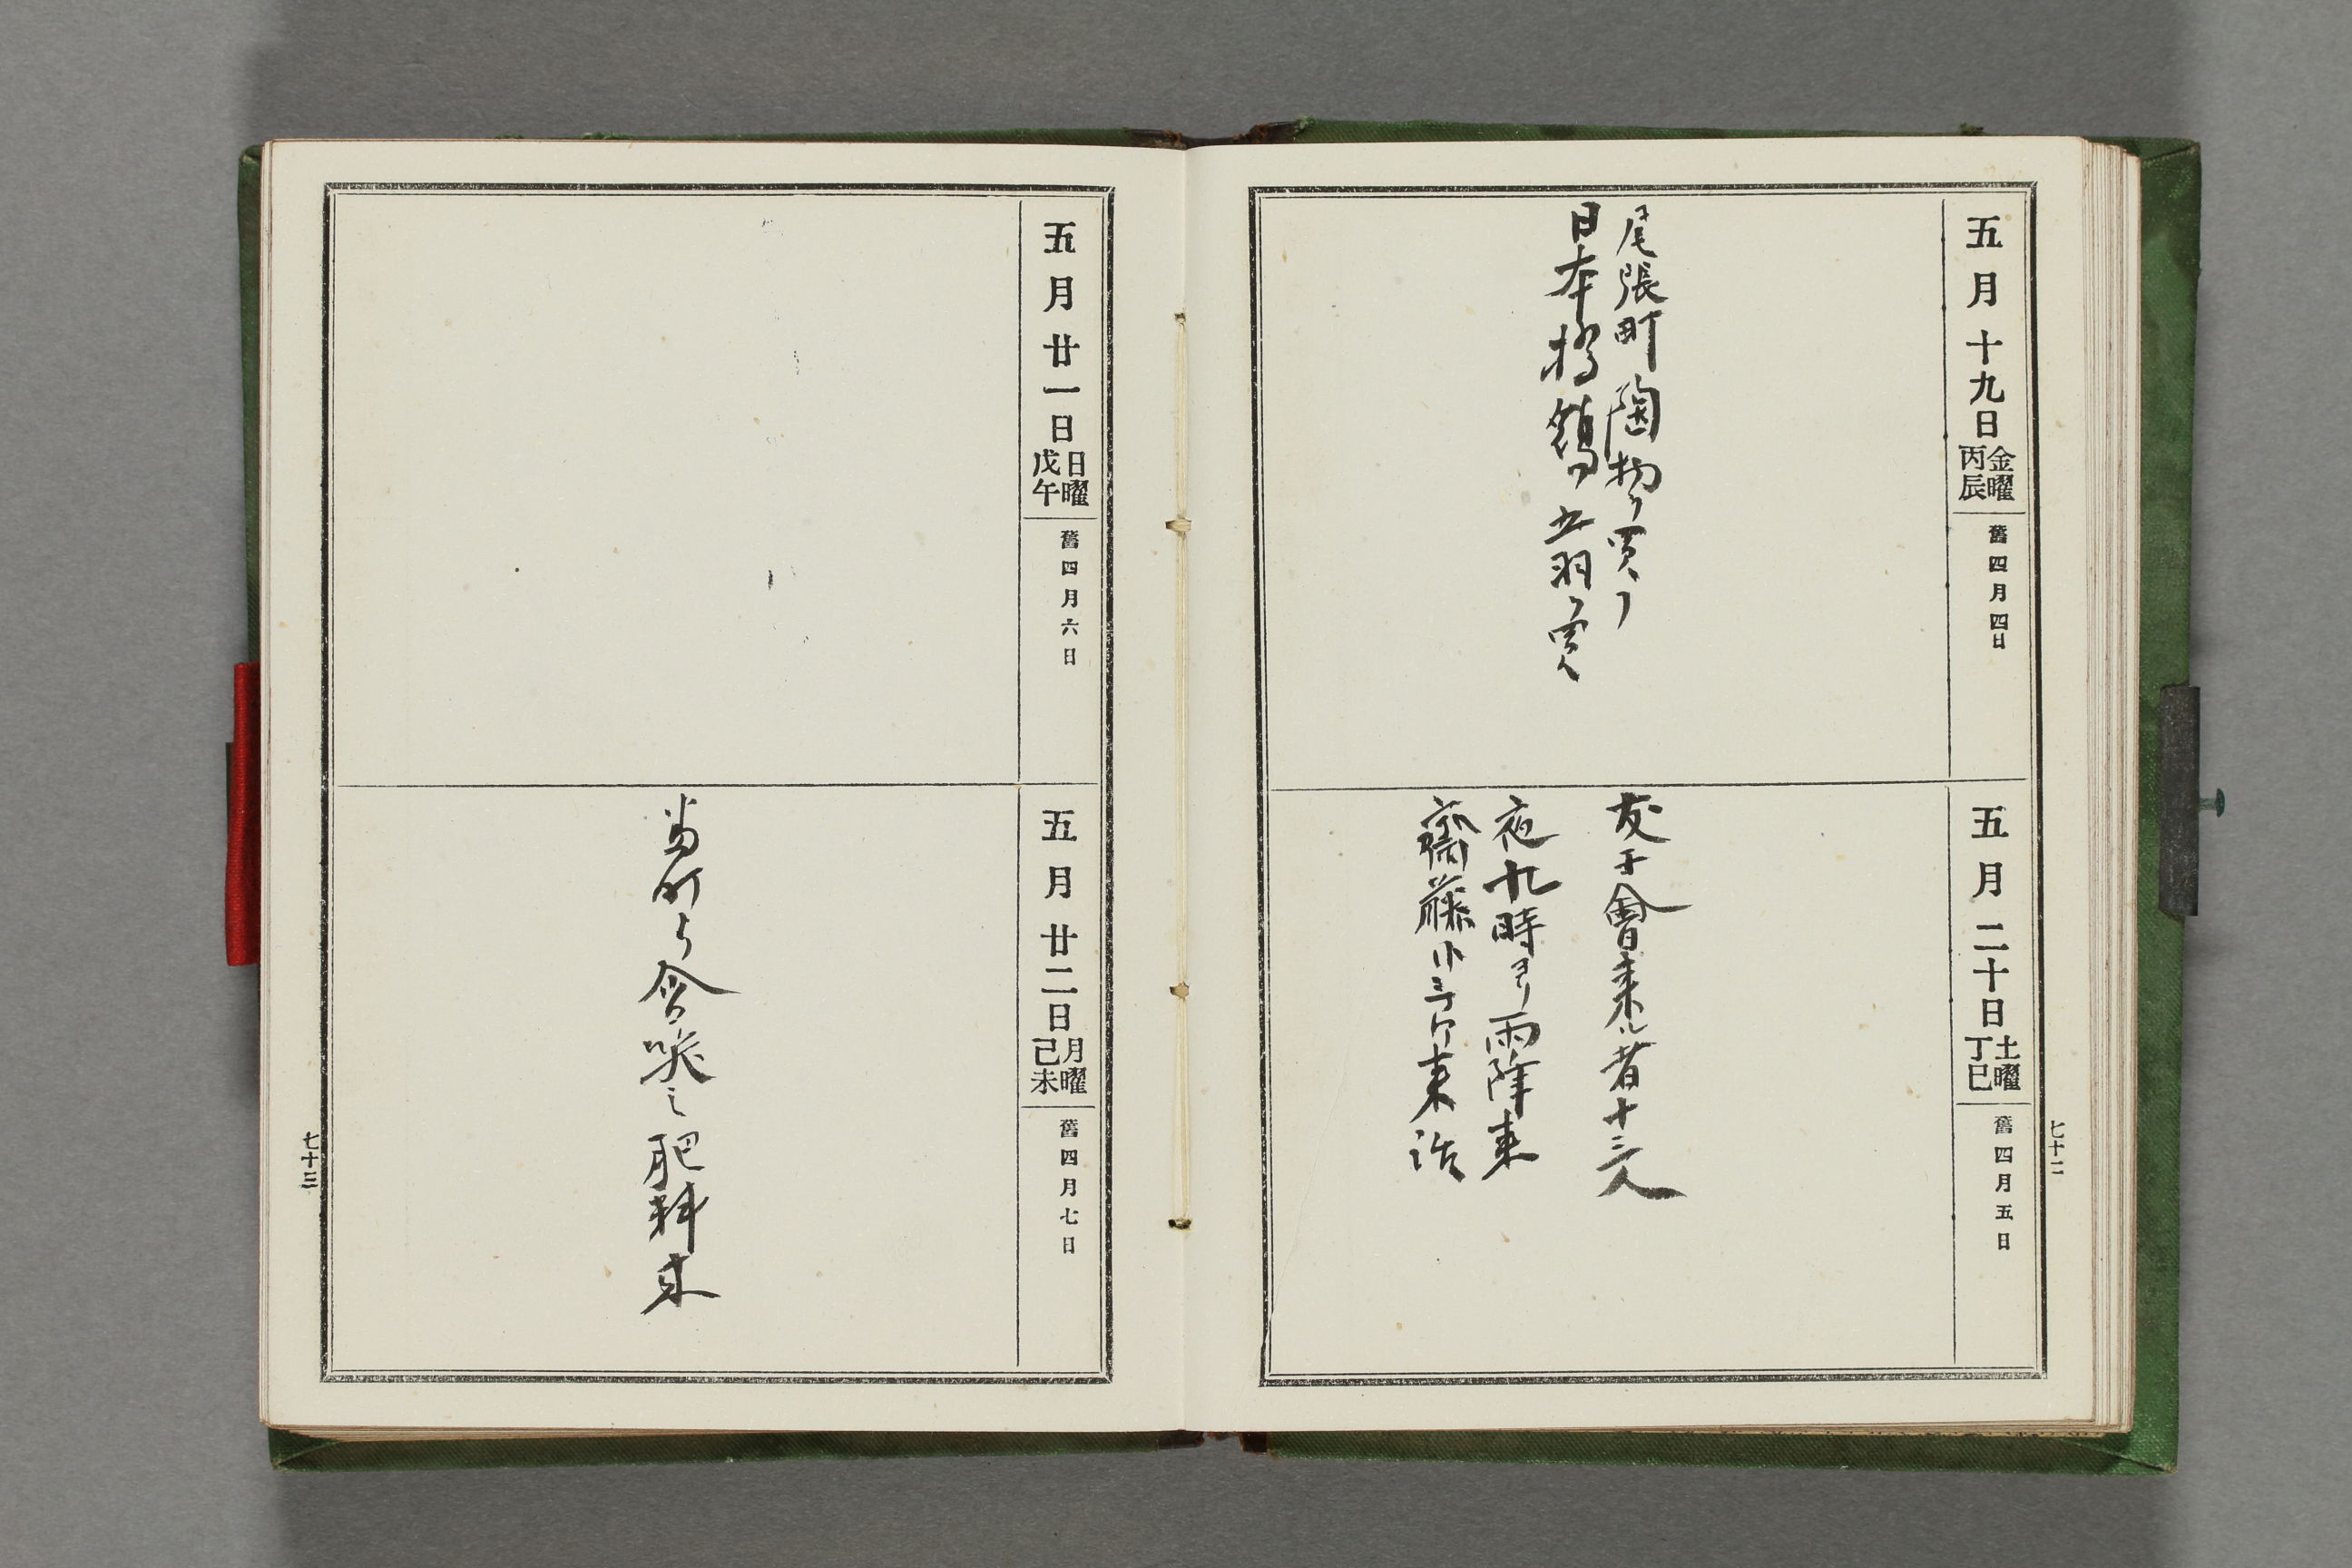 五月十九日 金曜 丙辰 舊四月四日
尾張町陶物ヲ買フ
日本橋鶴五羽ヲ買
五月二十日 土曜 丁巳 舊四月五日
友干會来ル者十三人
夜九時ヨリ雨降来
齋藤小 来話
七十二
五月廿一日 日曜 戊午 舊四月六日
五月廿二日 月曜 己未 舊四月七日
当町 会 肥料来
七十三